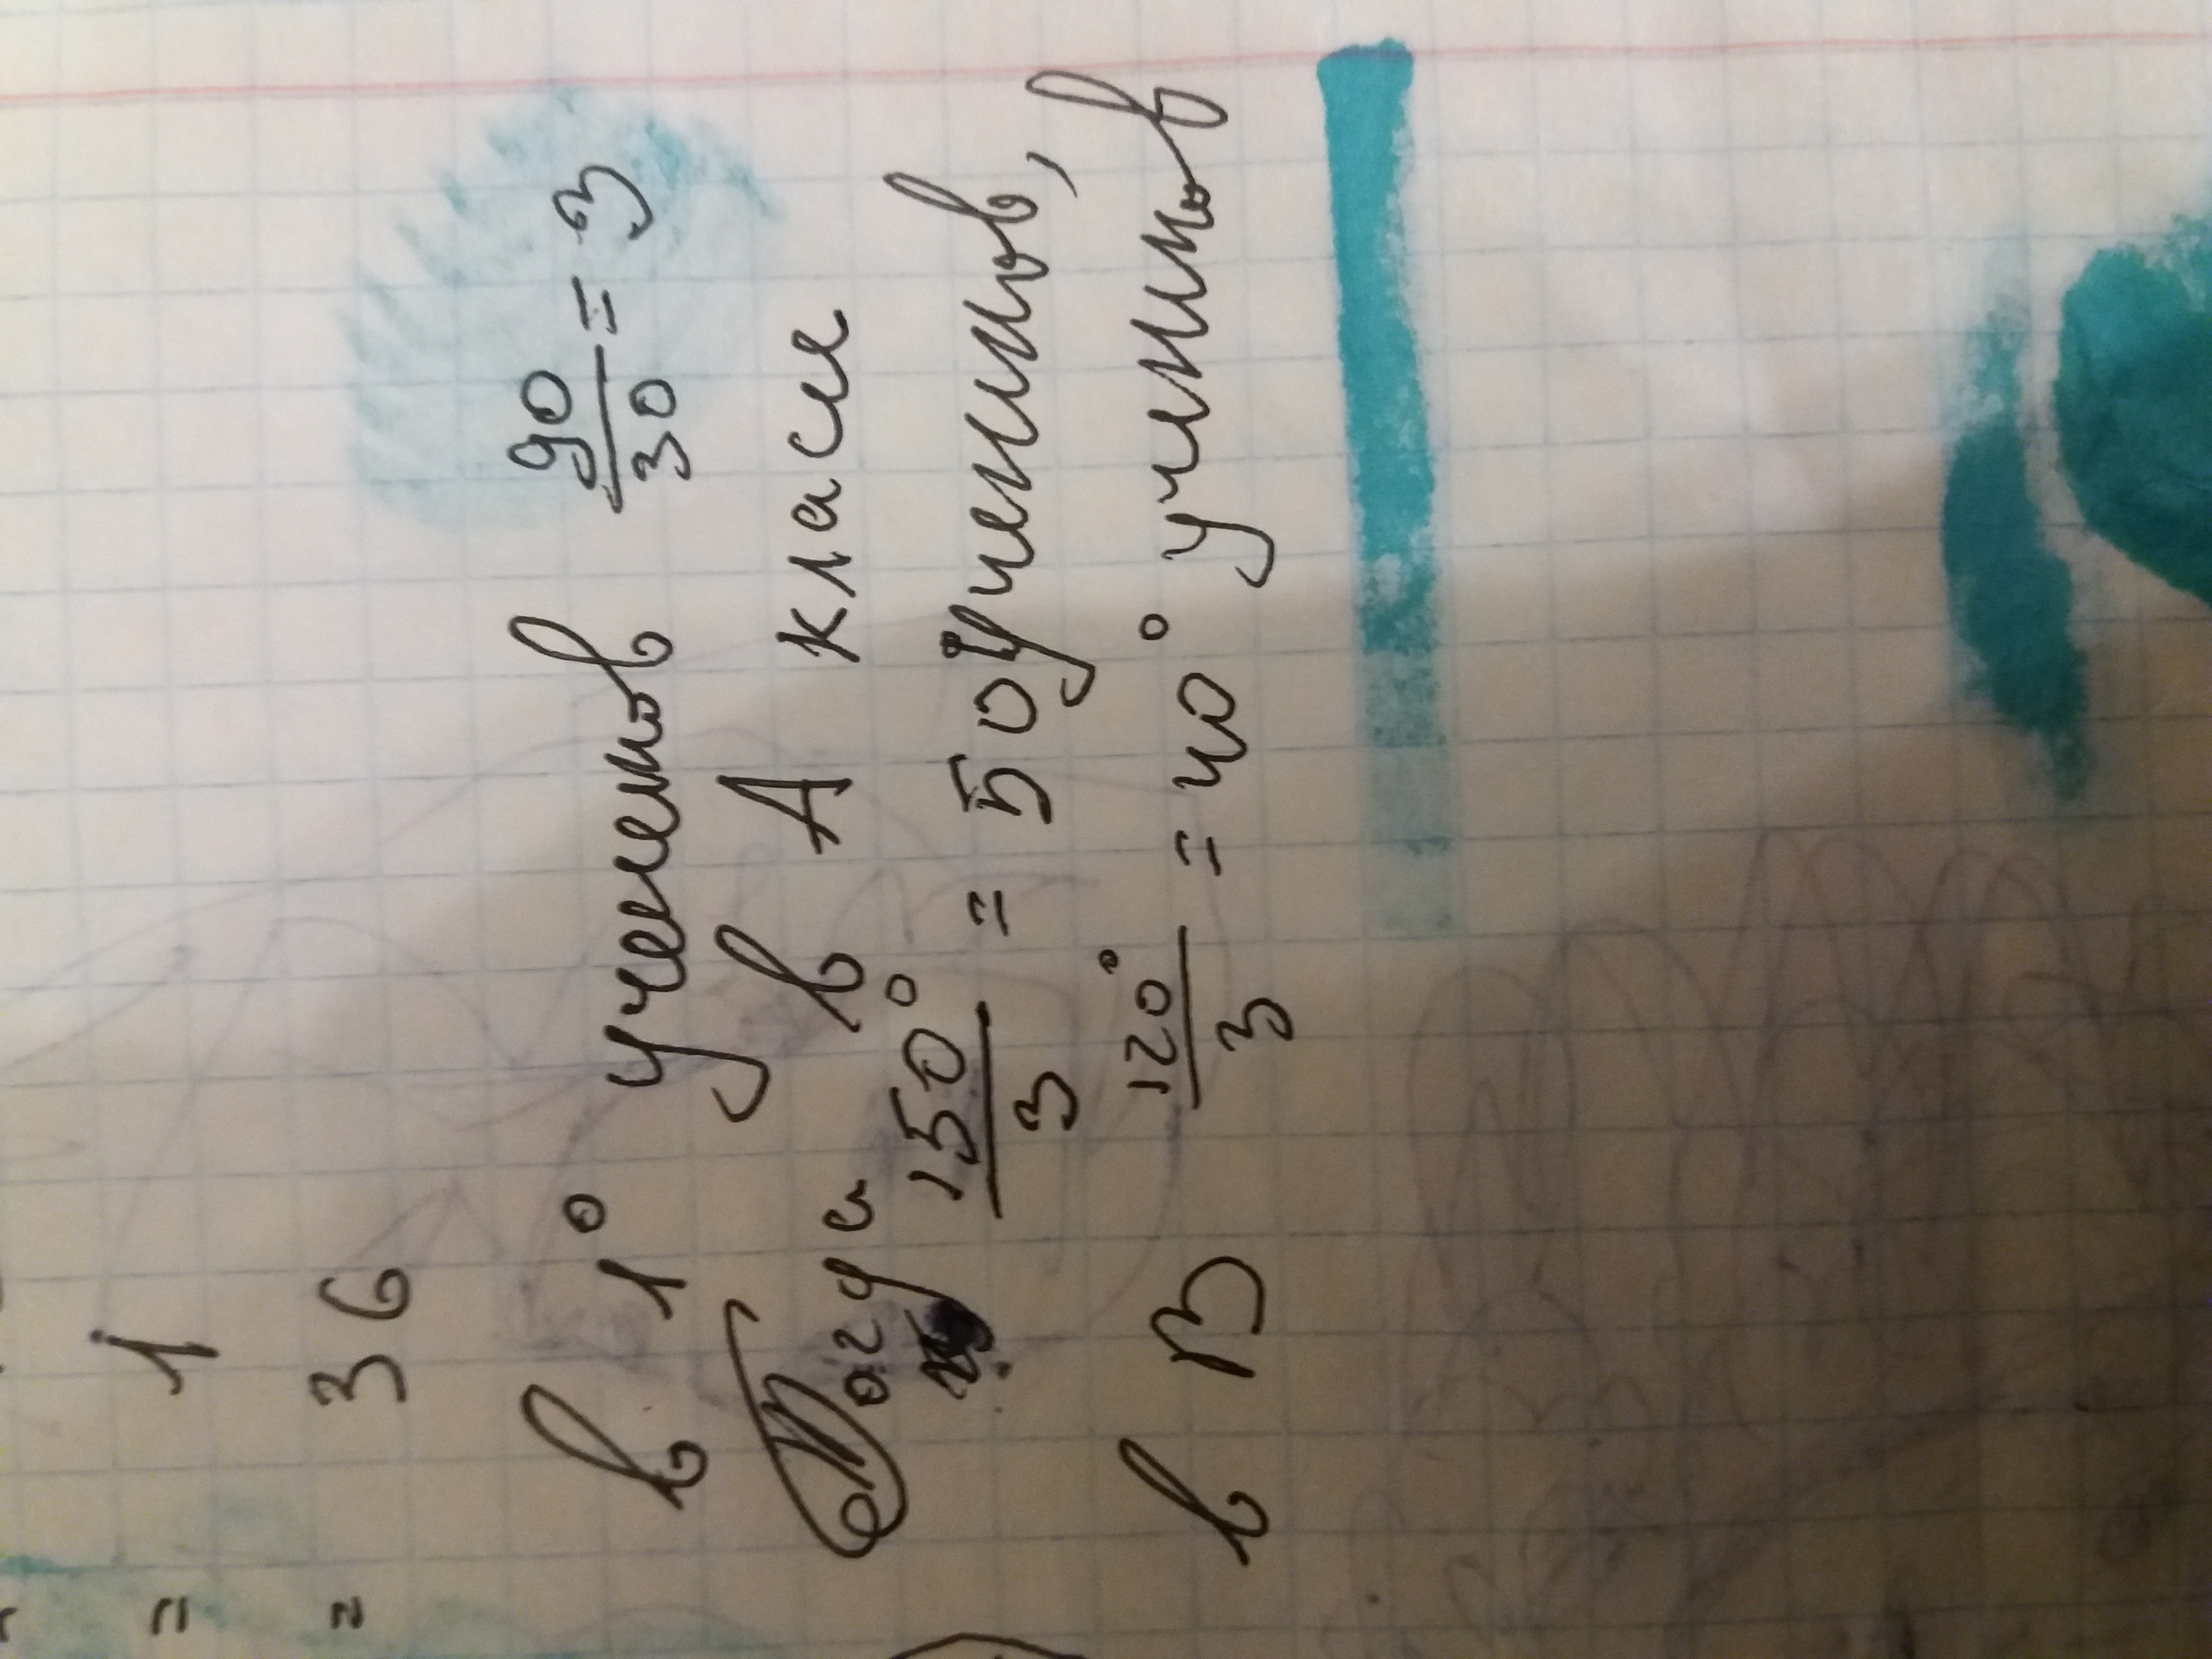 = 1
= 36
в 1° учеников 90/30 = 3
Тогда у в А класе
150°/3 = 50 учеников,
в В 120°/3 = 40° учеников